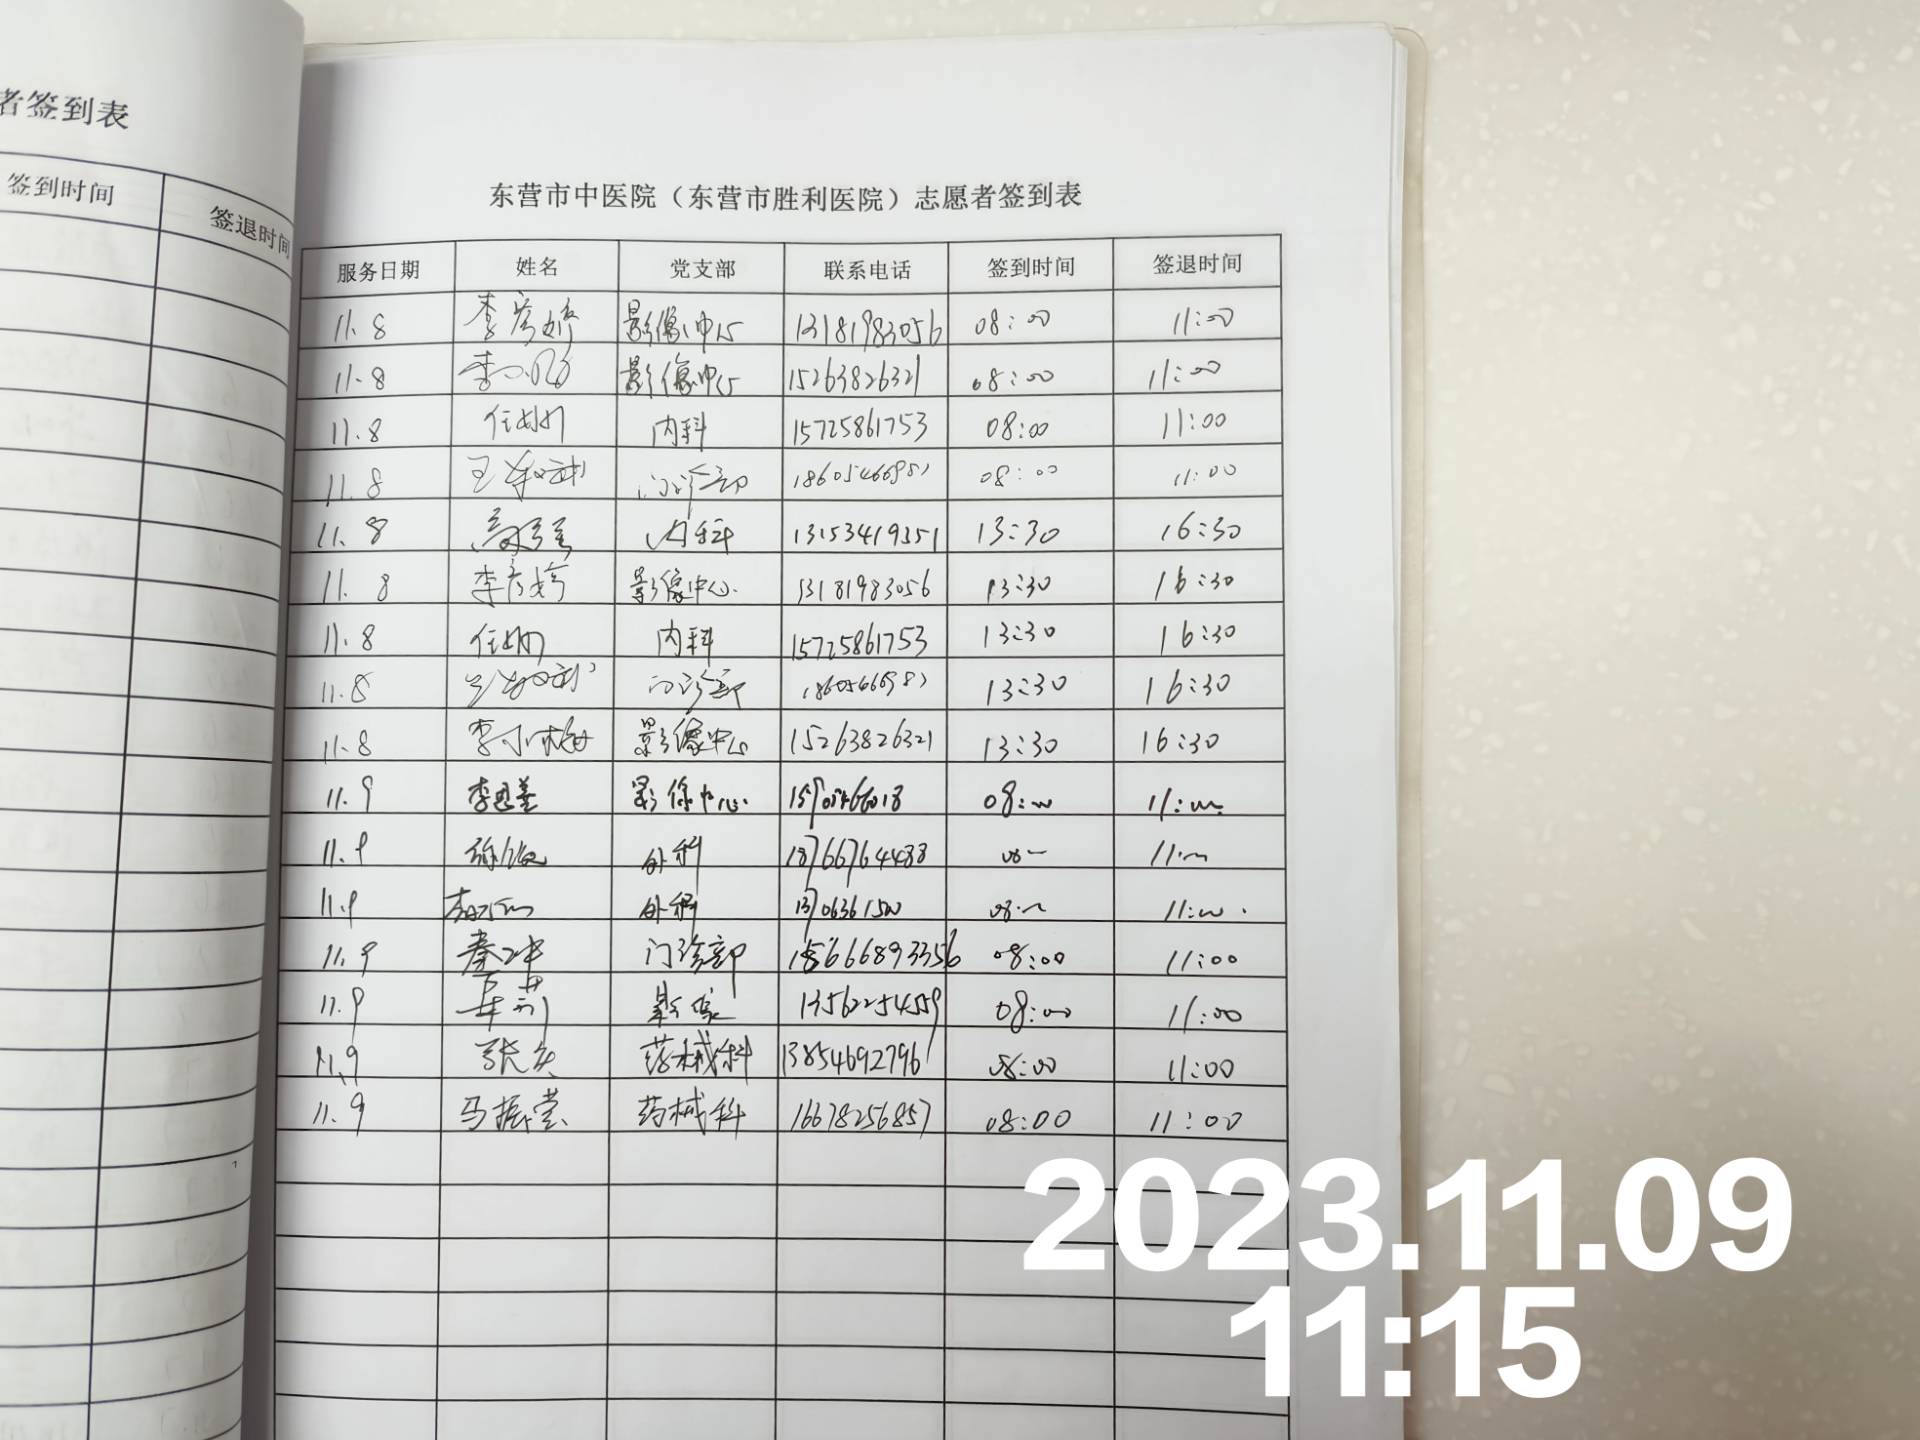 者签到表
签到时间 签退时间
东营市中医院（东营市胜利医院）志愿者签到表
服务日期 姓名 党支部 联系电话 签到时间 签退时间
11.8 李彦婷 影像中心 13181983056 08:00 11:00
11.8 李 影像中心 15263826321 08:00 11:00
11.8 任 内科 15725861753 08:00 11:00
11.8 王 门诊部 08:00 11:00
11.8 内科 13153419351 13:30 16:30
11.8 李彦婷 影像中心. 13181983056 13:30 16:30
11.8 任 内科 15725861753 13:30 16:30
11.8 门诊部 13:30 16:30
11.8 李小梅 影像中心 15263826321 13:30 16:30
11.9 李 影像中心. 08:00 11:00
11.9 外科 18766764488 08 11:
11.9 外科 08: 11:00
11.9 秦冲 门诊部 185666893356 08:00 11:00
11.9 莉 影像 13562254559 08:00 11:00
11.9 张 药械科 13854692796 08:00 11:00
11.9 马振莹 药械科 16678256857 08:00 11:00
2023.11.09
11:15